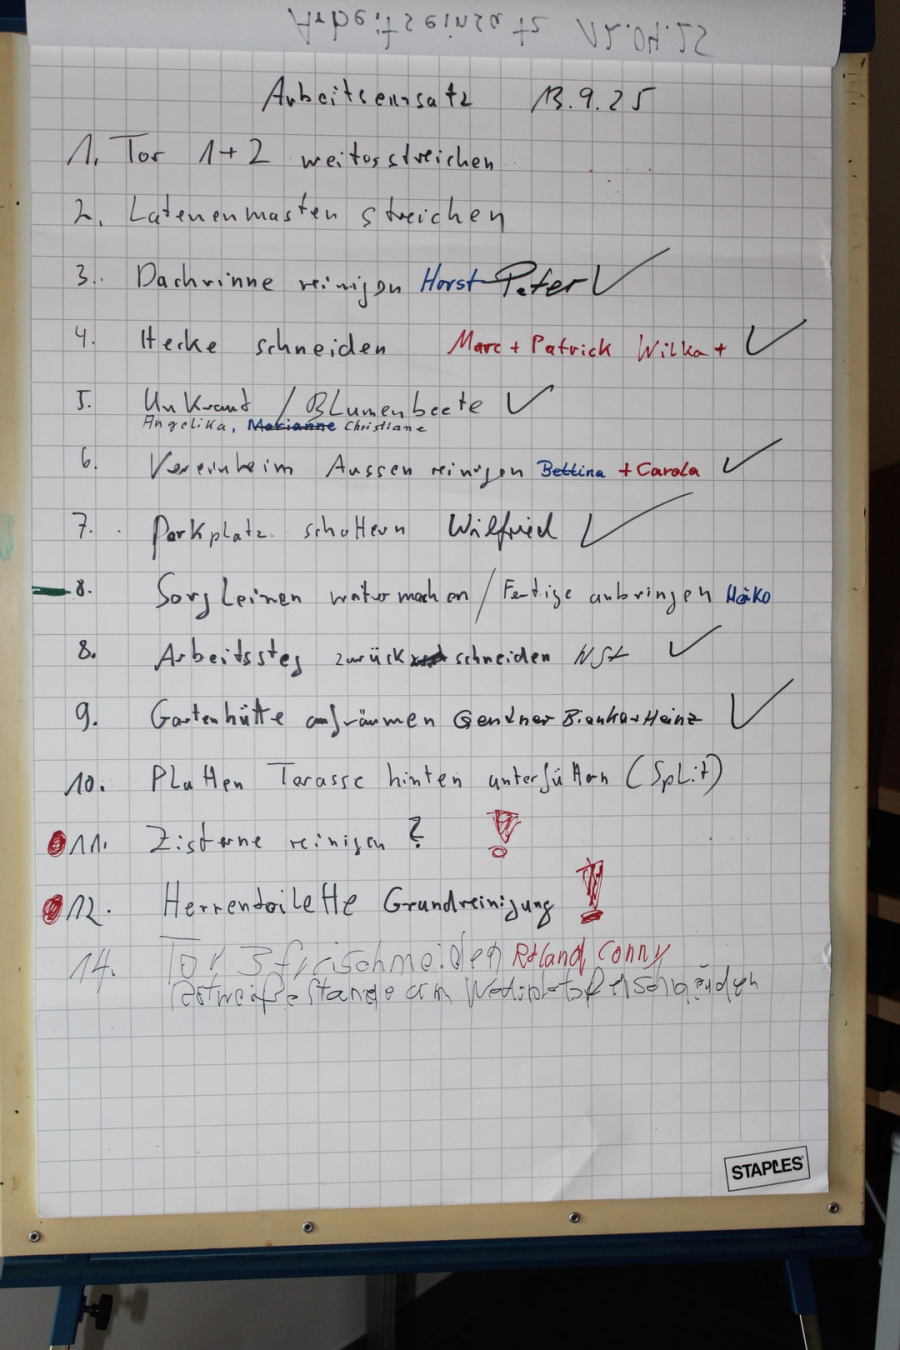 Arbeitseinsatz 12.04.25
Arbeitseinsatz 13.9.25
1. Tor 1+2 weiterstreichen
2. Laternenmasten streichen
3. Dachrinne reinigen Horst Peter ✓
4. Hecke schneiden Marc + Patrick Wilka + ✓
5. Unkraut / Blumenbeete ✓
Angelika, Marianne Christiane
6. Vereinheim Aussen reinigen Bettina + Carola ✓
7. Parkplatz schottern Wilfried ✓
8. Sorgleinen weitermachen / Fertige anbringen Heiko
8. Arbeitssteg zurück schneiden NSt ✓
9. Gartenhütte aufräumen Gendner Bianka+Heinz ✓
10. Platten Terasse hinten unterfüttern (Split)
11. Zisterne reinigen ? !
12. Herrentoilette Grundreinigung !
14. Tor 3 freischneiden Roland, Conny
STAPLES